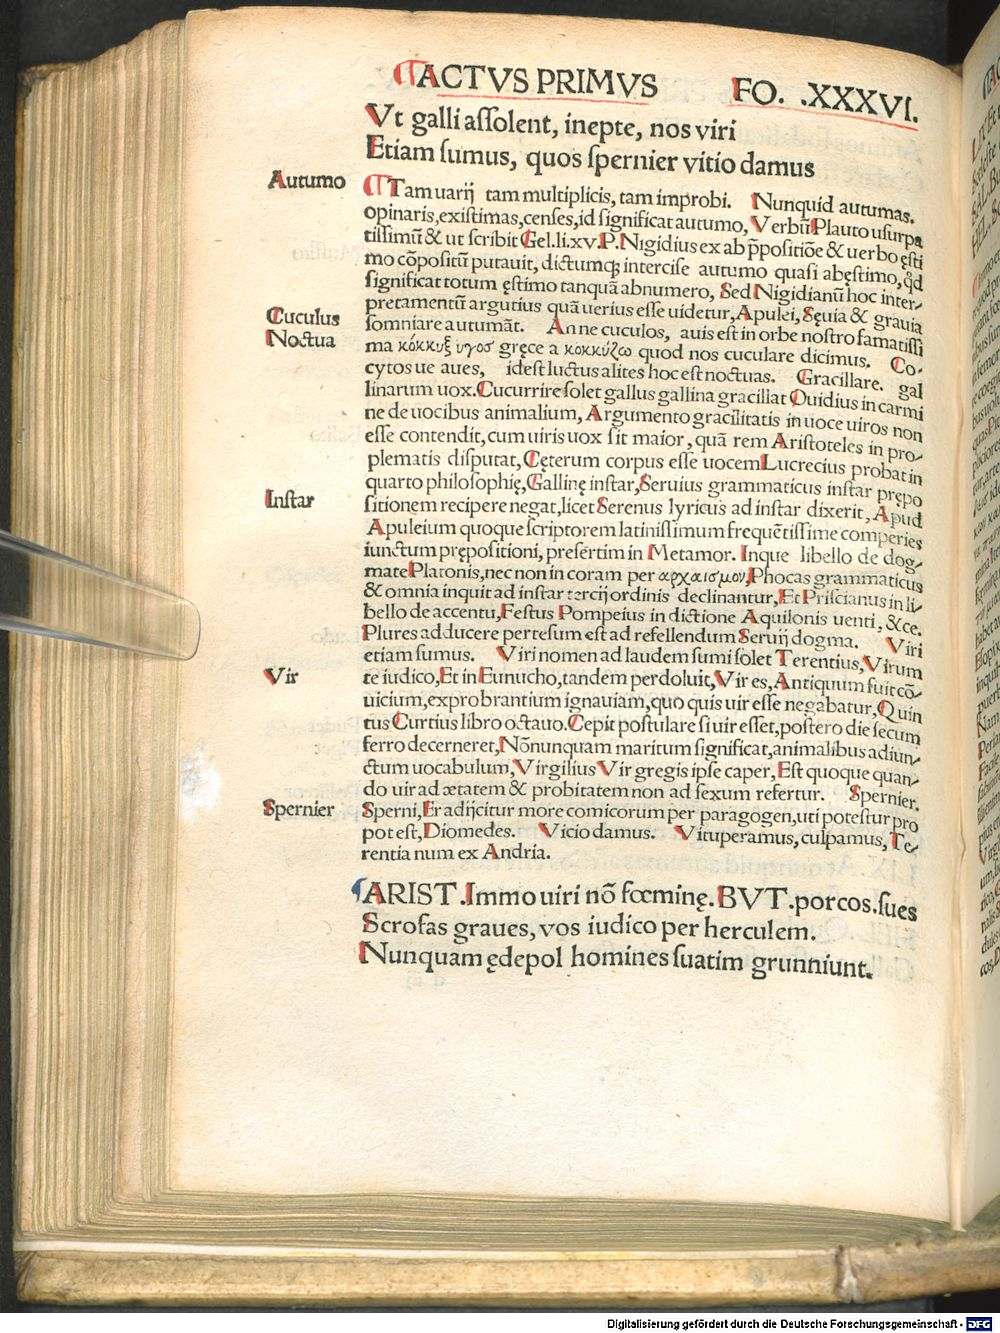 ACTVS PRIMVS FO. .XXXVI.
Vt galli assolent, inepte, nos viri
Etiam sumus, quos spernier vitio damus
Autumo
Tam uarij tam multiplicis, tam improbi. Nunquid autumas.
opinaris, existimas, censes, id significat autumo, Verbū Plauto usurpa
tissimū & ut scribit Gel.li.xv.P.Nigidius ex ab p̄positiōe & uerbo ęsti
mo cōpositū putauit, dictumq; intercise autumo quasi abęstimo, qd̄
significat totum ęstimo tanquā abnumero, Sed Nigidianū hoc inter-
pretamentū argutius quā uerius esse uidetur, Apulei, Sęuia & grauia
Cuculus
somniare autumāt. An ne cuculos, auis est in orbe nostro famatissi
Noctua
ma κόκκυξ υγοσ gręce a κοκκύζω quod nos cuculare dicimus. Co-
cytos ue aues, idest luctus alites hoc est noctuas. Gracillare. gal
linarum uox. Cucurrire solet gallus gallina gracillat Ouidius in carmi
ne de uocibus animalium, Argumento gracilitatis in uoce uiros non
esse contendit, cum uiris uox sit maior, quā rem Aristoteles in pro-
plematis disputat, Cęterum corpus esse uocem Lucrecius probat in
quarto philosophię, Gallinę instar, Seruius grammaticus instar prępo
Instar
sitionem recipere negat, licet Serenus lyricus ad instar dixerit, Apud
Apuleium quoque scriptorem latinissimum frequētissime comperies
iunctum prępositioni, presertim in Metamor. Inque libello de dog-
mate Platonis, nec non in coram per αρχαισμον, Phocas grammaticus
& omnia inquit ad instar tercij ordinis declinantur, Et Priscianus in li-
bello de accentu, Festus Pompeius in dictione Aquilonis uenti, &ce.
Plures adducere pertesum est ad refellendum Seruij dogma. Viri
etiam sumus. Viri nomen ad laudem sumi solet Terentius, Virum
Vir
te iudico, Et in Eunucho, tandem perdoluit, Vir es, Antiquum fuit cō-
uicium, exprobrantium ignauiam, quo quis uir esse negabatur, Quin
tus Curtius libro octauo. Cepit postulare si uir esset, postero die secum
ferro decerneret, Nōnunquam maritum significat, animalibus adiun-
ctum uocabulum, Virgilius Vir gregis ipse caper, Est quoque quan-
do uir ad ætatem & probitatem non ad sexum refertur. Spernier.
Spernier
Sperni, Er adijcitur more comicorum per paragogen, uti potestur pro
potest, Diomedes. Vicio damus. Vituperamus, culpamus, Te-
rentia num ex Andria.
ARIST. Immo uiri nō fœminę. BVT. porcos. sues
Scrofas graues, vos iudico per herculem.
Nunquam ędepol homines suatim grunniunt.
Digitalisierung gefördert durch die Deutsche Forschungsgemeinschaft - DFG